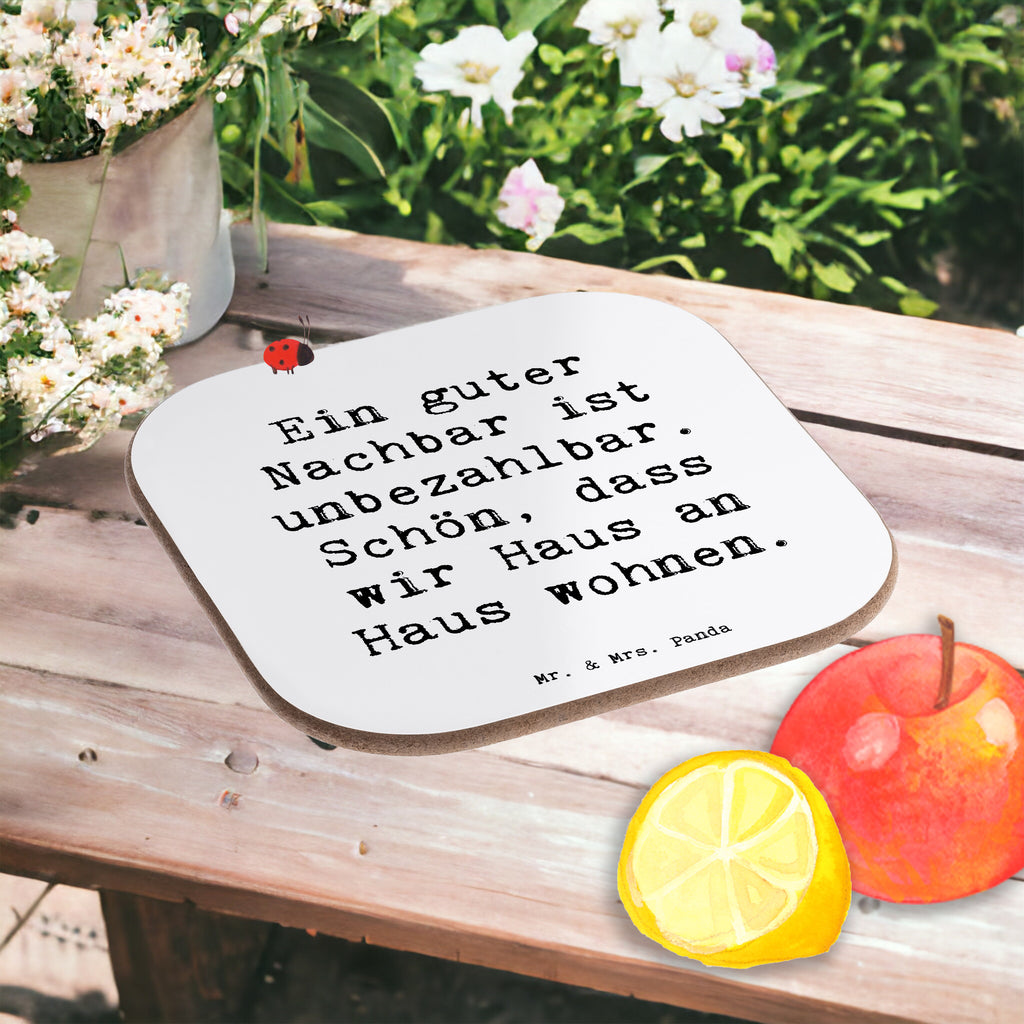 Ein guter
Nachbar ist
unbezahlbar.
Schön, dass
wir Haus an
Haus wohnen.
Mr. & Mrs. Panda